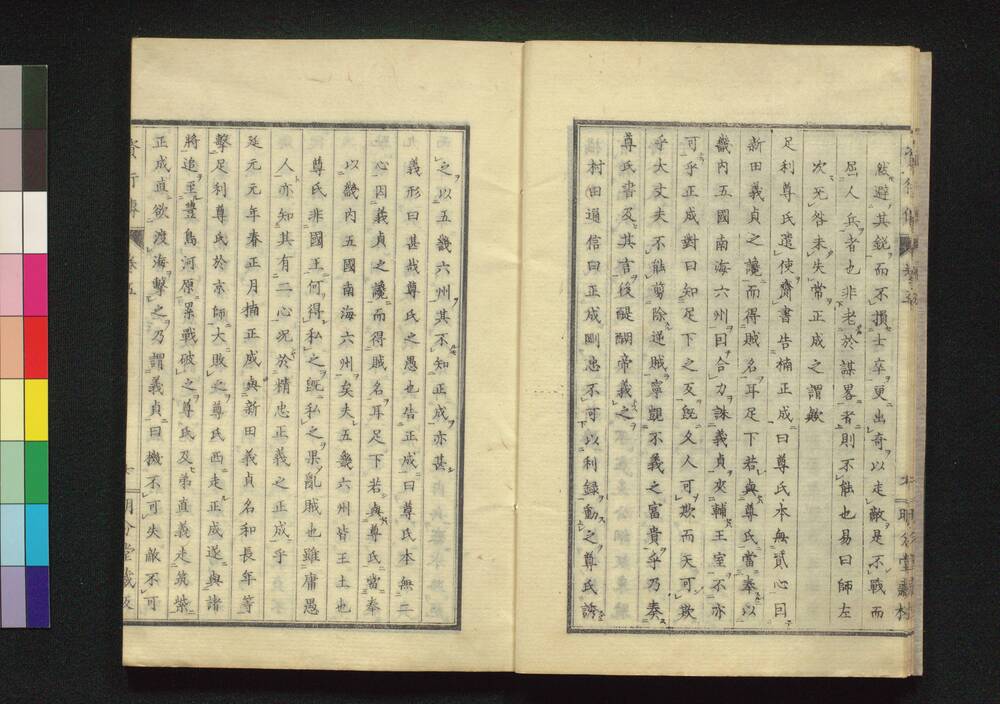 然避其鋭而不損士卒更出奇以走敵是不戰而
屈人兵者也非老於謀畧者則不能也易曰師左
次无咎未失常正成之謂歟
足利尊氏遣使齎書告楠正成曰尊氏本無貳心因
新田義貞之讒而得賊名耳足下若與尊氏當奉以
畿內五國南海六州回合力誅義貞夾輔王室不亦
可乎正成對曰知足下之反既久人可欺而天可欺
乎大丈夫不能葛除逆賊寧覬不義之富貴乎乃奏
尊氏書及其言後醍醐帝義之
村田通信曰正成剛忠不可以利録動之尊氏誘
之以五畿六州其不知正成亦甚
義形曰甚哉尊氏之愚也告正成曰尊氏本無二
心因義貞之讒而得賊名耳足下若與尊氏當奉
以畿內五國南海六州矣夫五畿六州皆王土也
尊氏非國王何得私之既私之果亂賊也雖庸愚
人亦知其有二心况於精忠正義之正成乎
延元元年春正月楠正成與新田義貞名和長年等
擊足利尊氏於京師大敗之尊氏西走正成遂與諸
將追至豊島河原累戰破之尊氏及弟直義走筑紫
正成直欲渡海擊之乃謂義貞曰機不可失敵不可